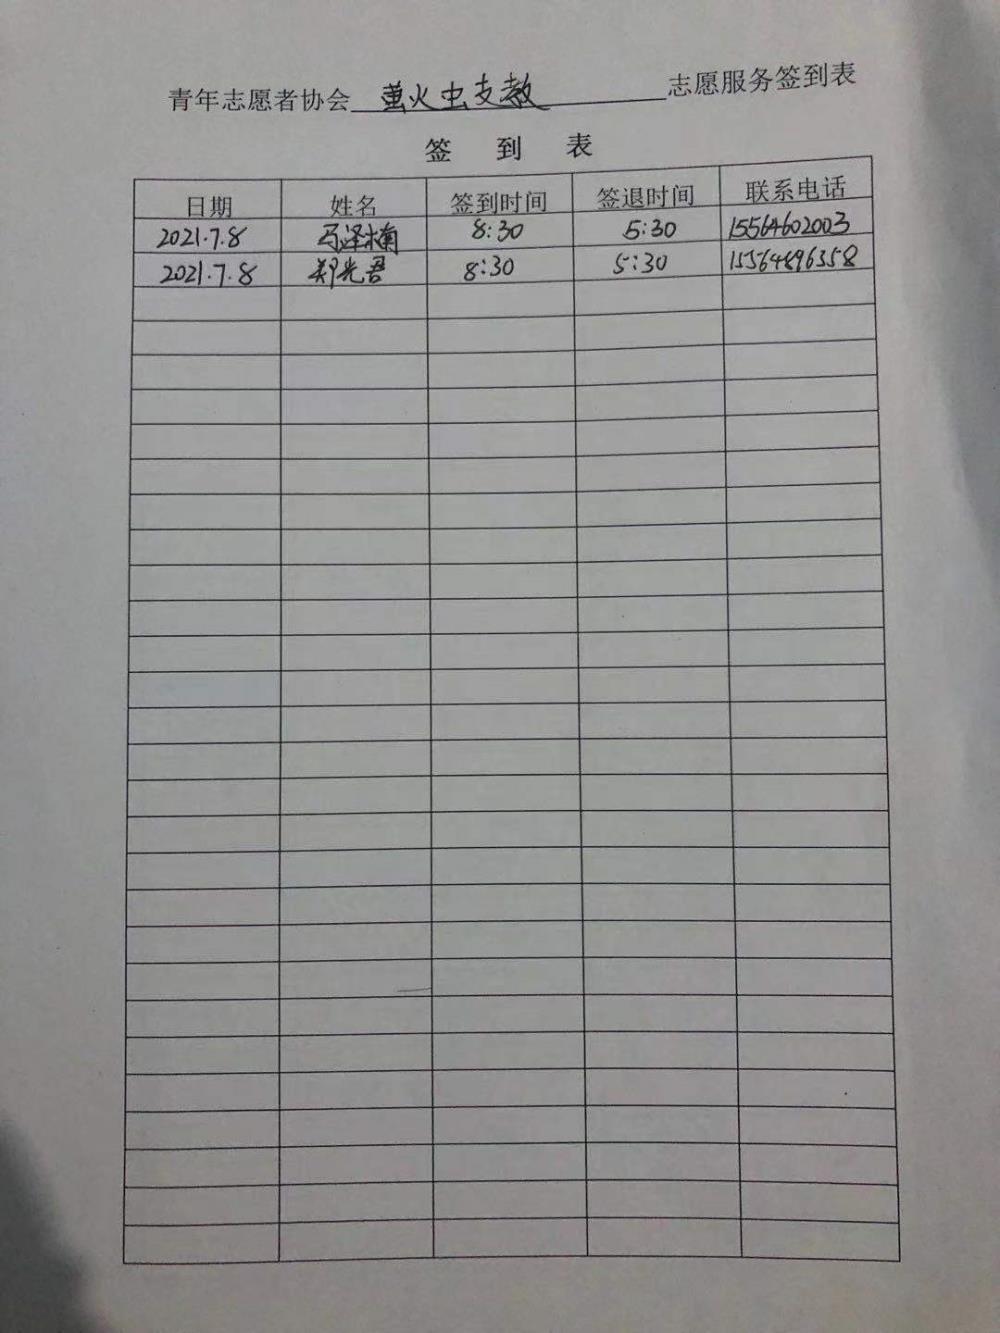 青年志愿者协会 萤火虫支教 志愿服务签到表
签 到 表
日期 姓名 签到时间 签退时间 联系电话
2021.7.8 马泽楠 8:30 5:30 15564602003
2021.7.8 郑光君 8:30 5:30 15564896358